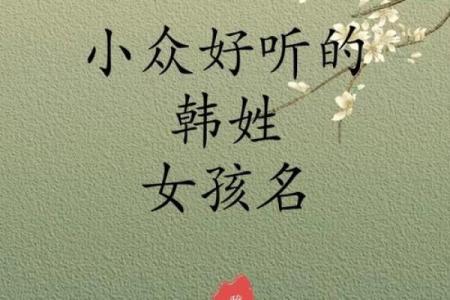 小众好听的
韩姓
女孩名